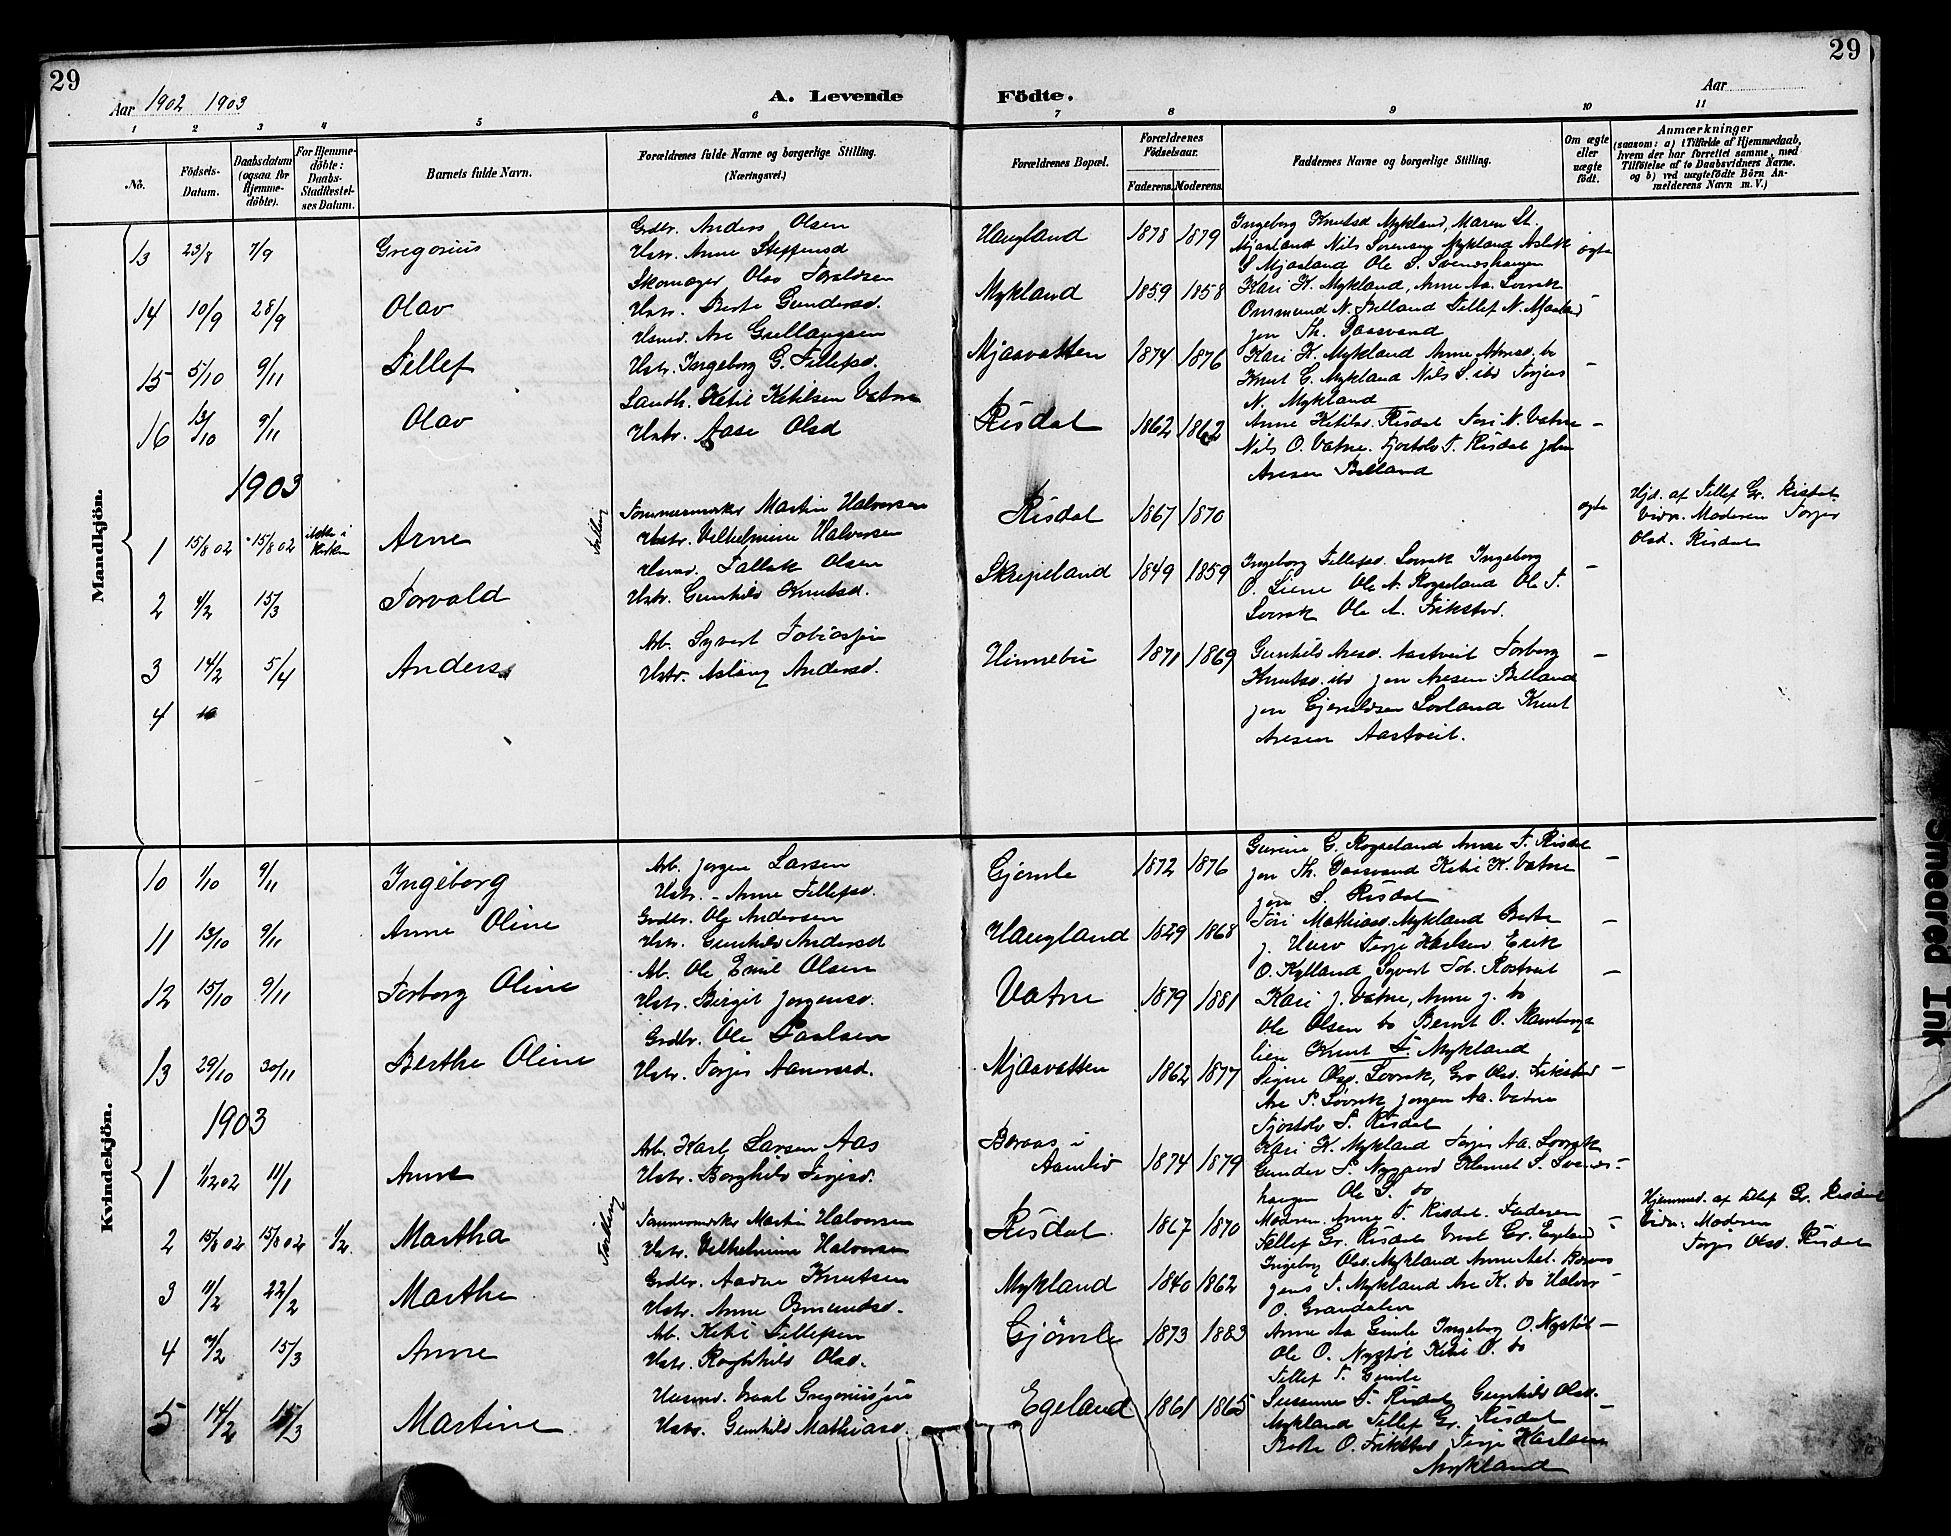 29
29
Aar 1902 1903
A. Levende Födte.
Aar
1 2 3 4 5 6 7 8 9 10 11
No.
Födsels-Datum.
Daabsdatum (ogsaa for Hjemme-döbte).
For Hjemme-döbte: Daabs-Stadfæstel-ses Datum.
Barnets fulde Navn.
Forældrenes fulde Navne og borgerlige Stilling. (Næringsvei.)
Forældrenes Bopæl.
Forældrenes Födselsaar.
Faderens. Moderens.
Faddernes Navne og borgerlige Stilling.
Om ægte eller uægte födt.
Anmærkninger
(saasom: a) i Tilfælde af Hjemmedaab,
hvem der har forrettet samme, med
Tilföielse af to Daabsvidners Navne.
og b) ved uægtefödte Börn An-
melderens Navn m. V.)
Mandkjön.
13 23/8 7/9 Gregorius
Grdbr. Anders Olsen
Hstr. Anne Steffensd
Haugland 1878 1879
Ingeborg Knutsd Mykland, Maren St.
Mjaaland Nils Sorensen Mykland Aslak
S Mjaaland Ole S. Svendshaugen
ægte
14 10/9 28/9 Olav
Skomager Olav
Hstr. Berte Gundersd.
Mykland 1859 1858
Kari K. Mykland, Anne Aa. Lovrak
Ommund N. Belland Tellef N. Mjaaland
Jon Th. Daasvand
-
15 5/10 9/11 Tellef
Husmd. Are
Hstr. Ingeborg G. Tellefsd.
Mjaavatten 1874 1876
Kari K. Mykland Anne
Knut G. Mykland Nils S. ibd Torjus
N. Mykland
-
16 13/10 9/11 Olav
Landh. Ketil Ketilsen Vatne
Hstr. Aase Olsd
Risdal 1862 1862
Anne Ketilsd. Risdal Tori N. Vatne
Nils O. Vatne. Fjostolv T. Risdal John
Aresen Belland
-
1903
1 15/8 02 15/8 02 ikke i Kirken Arne
Tvilling
Tommermerker Martin Halvorsen
Hstr. Vilhelmine Halvorsen
Risdal 1867 1870
ægte
Hjd. af Tellef Gr. Risdal
Vidn. Moderen Torjer
Olsd. Risdal
2 4/2 15/3 Torvald
Husmd. Tallak Olsen
Hstr. Gunhild Knutsd.
Skripeland 1849 1859
Ingeborg Tellefsd. Lovrak Ingeborg
O. Liene Ole N. Rogseland Ole T.
Lovrak Ole A. Frikstad.
-
3 14/2 5/4 Anders
Arb. Syvert Tobiassen
Hstr. Aslaug Andersd.
Hinnebu 1871 1869
Gunhild Aresd. Aastveit Torborg
Knutsd. ibd Jon Aresen Belland
Jon Gjeruldsen Lovland Knut
Aresen Aastveit.
-
4
Kvindekjön.
10 1/10 9/11 Ingeborg
Arb. Jorgen Larsen
Hstr. - Anne Tellefsd.
Gjomle 1872 1876
Gurine G. Rogseland Anne T. Risdal
Jon Th. Daasvand Ketil K. Vatne
Jon S. Risdal
-
11 13/10 9/11 Anne Oline
Grdbr. Ole Andersen
Hstr. Gunhild Andersd
Haugland 1829 1868
Tori Mathiasd. Mykland Berte
J. Terje Karlsen Erik
O. Kylland Syvert Tob. Rostveit
-
12 15/10 9/11 Torborg Oline
Arb. Ole Emil Olsen
Hstr. Birgit Jorgensd.
Vatne 1879 1881
Kari J. Vatne, Anne J. do
Ole Olsen do Bernt O. Rambergs
lien Knut T. Mykland
-
13 29/10 30/11 Berthe Oline
Grdbr. Ole Paalsen
Hstr. Torjer
Mjaavatten 1862 1877
Signe Olsd. Lovrak, Gro Olsd. Frikstad
Are P. Lovrak Jorgen Aa. Vatne
Fjostolv S. Risdal
-
1903
1 1/12 02 11/1 Anne
Arb. Karl Larsen Aas
Hstr. Borghild Terjesd.
Boraas i Aamliv 1874 1879
Kari K. Mykland Torjer Aa. Lovrak
Gunder P. Nygaard S. Svends-
haugen Ole S. do
-
2 15/8 02 15/8 02 1/2. Martha
Tvilling
Tommermerker Martin Halvorsen
Hstr. Vilhelmine Halvorsen
Risdal. 1867 1870
Modren. Anne T. Risdal. Faderen
Tellef Gr. Risdal Vraal Gr. Egeland
-
Hjemmed. af Tellef Gr. Risdal
Vidn: Modren
Torjer Olsd. Risdal
3 11/2 22/2 Marthe
Grdbr. Aadne Knutsen
Hstr. Anne Omundsd.
Mykland 1840 1862
Ingeborg Olsd. Mykland Anne Boraas
Jens P. Mykland Are K. do Halvor
O. Grandalen
-
4 7/2 15/3 Anne
Arb. Ketil Tellefsen
Hstr. Raghhild Olsd.
Gjömle 1873 1883
Anne Aa Gimle Ingeborg O. Nystöl
Ole O. Nystöl Ketil O. do
Tellef T. Gimle
-
5 14/2 15/3 Martine
Husmd. Vraal Gregoriussen
Hstr. Gunhild Mathiasd.
Egeland 1861 1865
Susanne T. Risdal Gunhild Olsd.
Mykland Tellef Gr. Risdal
Berte O. Frikstad Terje Karlsen
Mykland
-
Smeared Ink